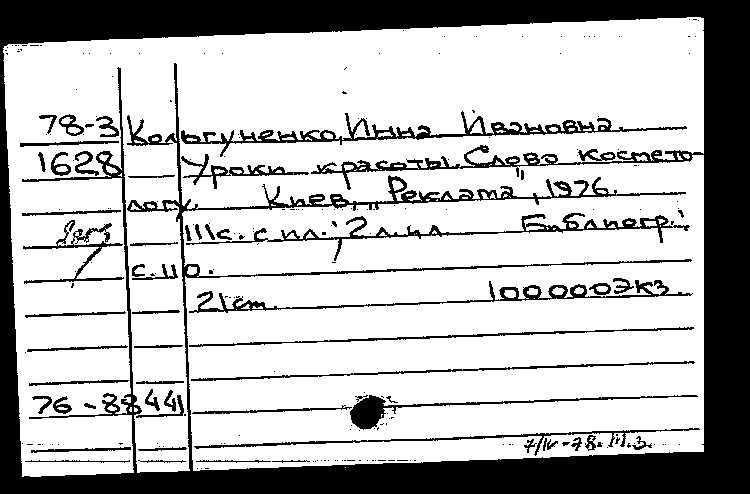 78-3 Кольгуненко, Инна Ивановна.
1628 Уроки красоты. Слово космето-
логу. Киев, "Реклама", 1976.
111с. с ил.; 2 л. ил. Библиогр.:
с. 110.
21 cm. 100000 экз.
76-88441
7/IV-78. М.З.